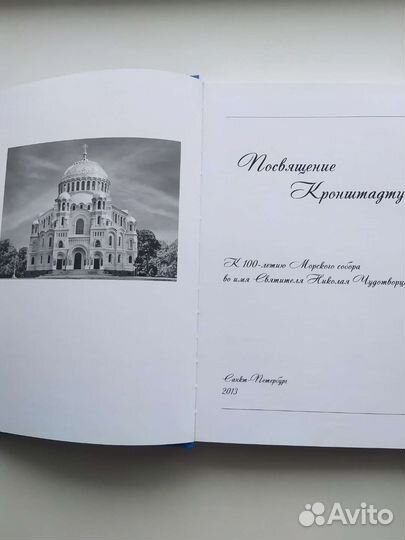 Посвящение
Кронштадту
К 100-летию Морского собора
во имя Святителя Николая Чудотворца
Санкт-Петербург
2013
Avito